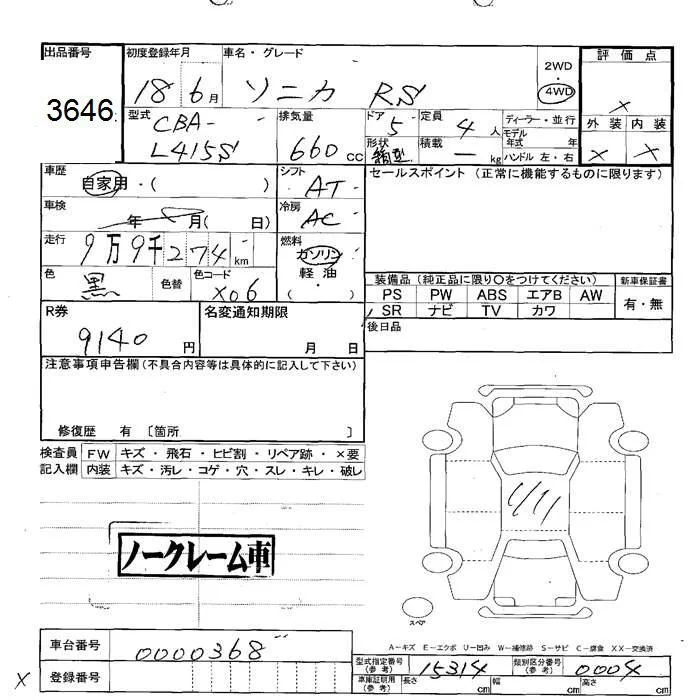 出品番号 初度登録年月 車名・グレード 2WD 4WD 評価点
3646 18 6月 ソニカ RS X
外装 内装
X X
型式 CBA- L415S 排気量 660 cc ドア 5 形状 箱型 定員 4 人 積載 ー kg ディーラー・並行 モデル年式 年式 ハンドル 左・右
車歴 自家用・( ) シフト AT セールスポイント (正常に機能するものに限ります)
車検 年 月( 日) 冷房 AC
走行 9万9千274 km 燃料 ガソリン
軽油
・
( )
色 黒 色替 色コード X06
装備品 (純正品に限り〇をつけてください) 新車保証書
PS PW ABS エアB AW 有・無
SR ナビ TV カワ
後日品
R券 9140 円 名変通知期限 月 日
注意事項申告欄(不具合内容等は具体的に記入して下さい)
修復歴 有 〔箇所 〕
検査員 FW キズ・飛石・ヒビ割・リペア跡・×要
記入欄 内装 キズ・汚レ・コゲ・穴・スレ・キレ・破レ
ノークレーム車
スペア
A−キズ E−エクボ U−凹み W−補修跡 S−サビ C−腐食 XX−交換済
車台番号 0000368
X 登録番号
型式指定番号 (参考) 15314 類別区分番号 (参考) 0004
車庫証明用 (参考) 長さ cm 幅 cm 高さ cm